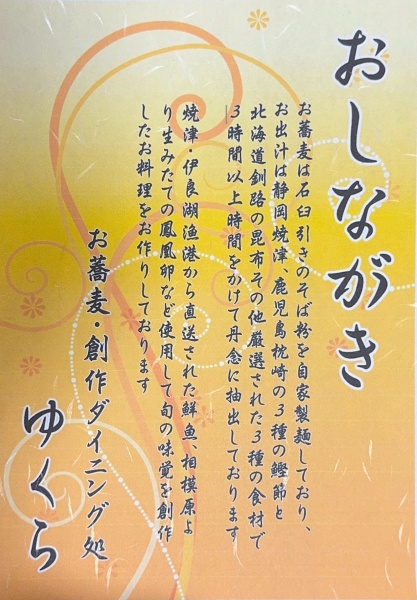 おしながき
お蕎麦は石臼引きのそば粉を自家製麺しており、
お出汁は静岡焼津、鹿児島枕崎の3種の鰹節と
北海道釧路の昆布その他厳選された3種の食材で
3時間以上時間をかけて丹念に抽出しております
焼津・伊良湖漁港から直送された鮮魚、相模原よ
り生みたての鳳凰卵など使用して旬の味覚を創作
したお料理をお作りしております
お蕎麦・創作ダイニング処
ゆくら